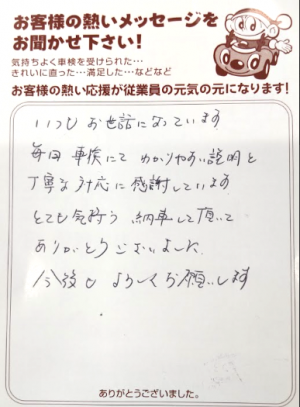 お客様の熱いメッセージを
お聞かせ下さい!
気持ちよく車検を受けられた…
きれいに直った…満足した…などなど
お客様の熱い応援が従業員の元気の元になります!
いつも お世話になっています
毎回 車検にて わかりやすい説明と
丁寧な対応に感謝しています
とても気持う 納車して頂いて
ありがとうございました
今後も よろしくお願いします
ありがとうございました。